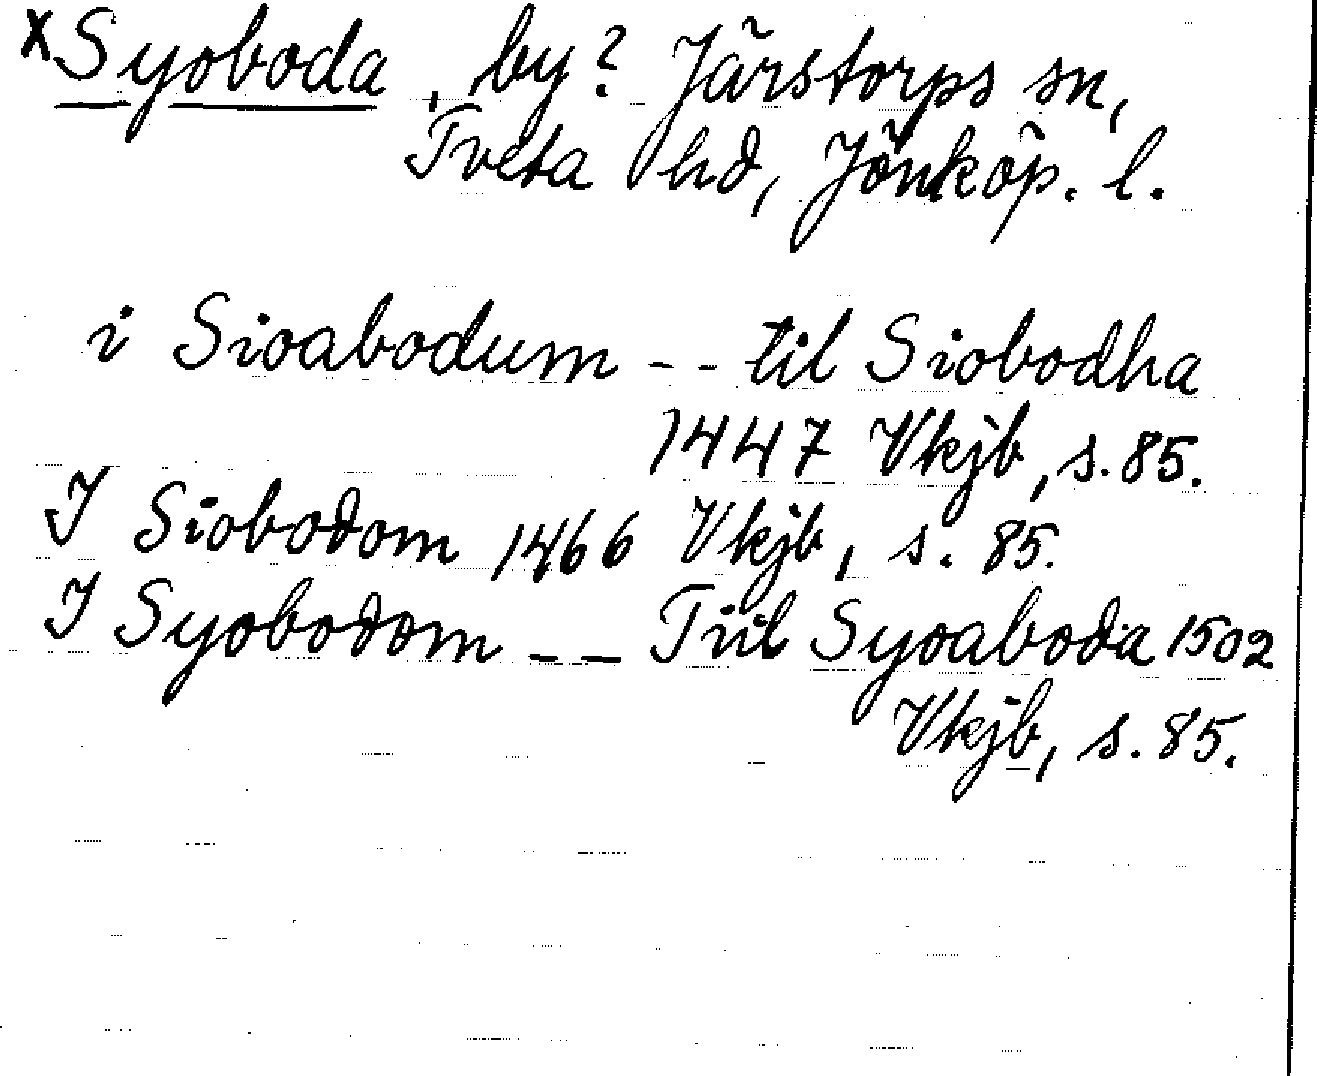 xSyoboda, by? Järstorps sn,
Tveta hd, Jönköp. l.
i Sioabodum -- til Siobodha
1447 Vkjb, s. 85.
I Siobodom 1466 Vkjb, s. 85.
I Syobodom -- Tiil Syoaboda 1502
Vkjb, s. 85.